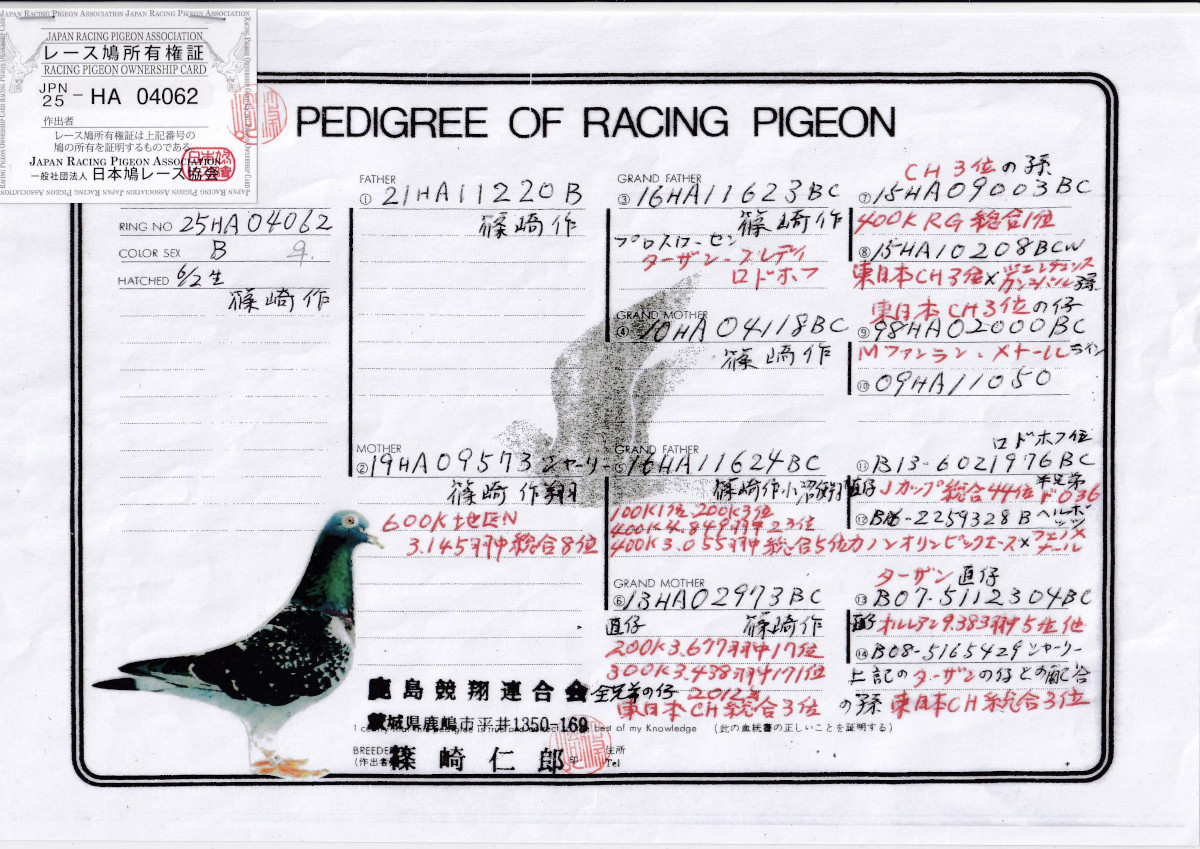 JAPAN RACING PIGEON ASSOCIATION JAPAN RACING PIGEON ASSOCIATION
JAPAN RACING PIGEON ASSOCIATION
レース鳩所有権証
RACING PIGEON OWNERSHIP CARD
JPN
25 - HA 04062
作出者
レース鳩所有権証は上記番号の
鳩の所有を証明するものである
JAPAN RACING PIGEON ASSOCIATION
一般社団法人 日本鳩レース協会
PEDIGREE OF RACING PIGEON
RING NO 25HA04062
COLOR SEX B ♀
HATCHED 6/2生
篠崎作
FATHER
① 21HA11220B
篠崎作
MOTHER
② 19HA09573 シャーリー
篠崎作翔
600K地区N
3.145羽中総合8位
GRAND FATHER
③ 16HA11623BC
篠崎作
プロスローセン
ターザン・フレディ
ロドホフ
GRAND MOTHER
④ 10HA04118BC
篠崎作
GRAND FATHER
⑤ 16HA11624BC
篠崎作小沼翔
100K1位 200K3位
400K4.849羽中23位
400K3.055羽中総合5位
GRAND MOTHER
⑥ 13HA02973BC
直仔 篠崎作
200K3.677羽中17位
300K3.438羽中171位
全兄弟の仔 2012年
東日本CH総合3位
CH3位の孫
⑦ 15HA09003BC
400KRG総合1位
⑧ 15HA10208BCW
東日本CH3位×
東日本CH3位の仔
⑨ 98HA02000BC
Mファンラン・メナールライン
⑩ 09HA11050
ロドホフ位
⑪ B13-6021976BC
直仔Jカップ総合44位 半兄弟ド036
⑫ B16-2259328B
カノンオリンピックエース×フェノメナール
ターザン直仔
⑬ B07-5112304BC
オルレアン9.383羽5位他
⑭ B08-5165429シャーリー
上記のターザンの仔との配合
の孫 東日本CH総合3位
鹿島競翔連合会
茨城県鹿嶋市平井1350-169
best of my Knowledge (此の血統書の正しいことを証明する)
BREEDER
(作出者) 篠崎仁郎 印
住所
Tel